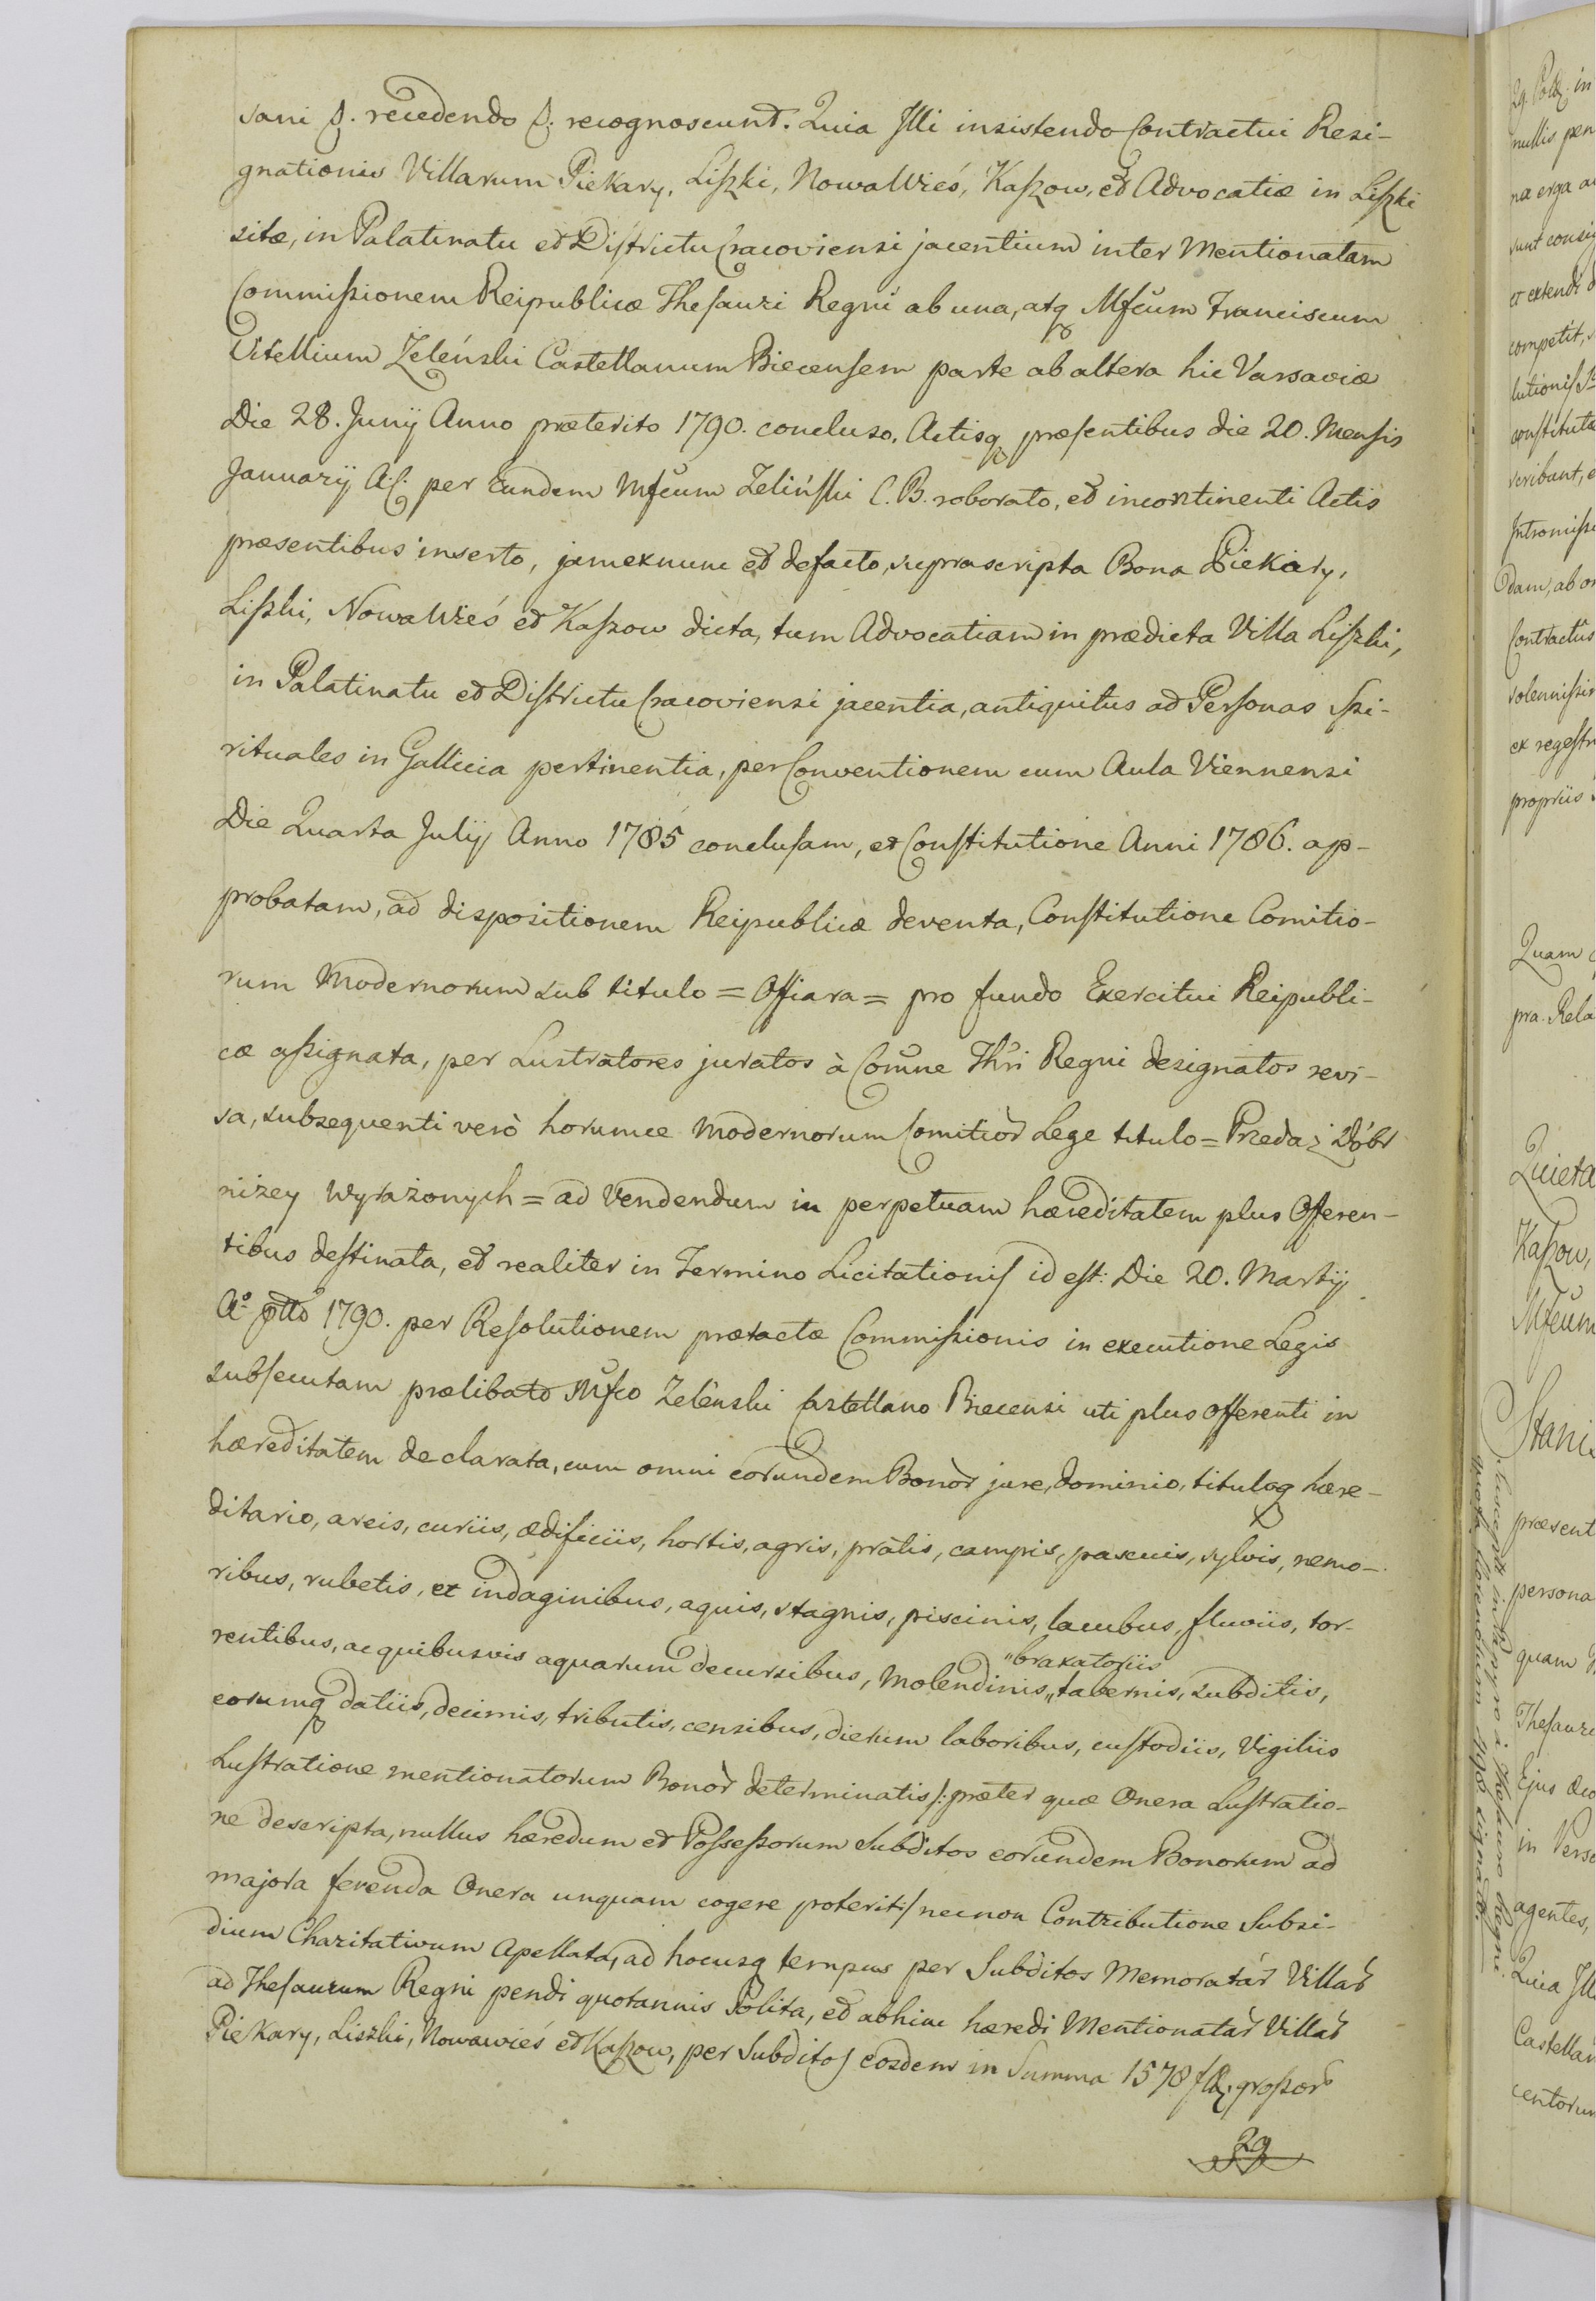 sani &. recedendo &. recognoscunt. Quia Illi insistendo Contractui Resi-
gnationis Villarum Piekary, Liszki, Nowa Wieś, Kaszow, et Advocatiæ in Liszki
sitæ, in Palatinatu et Districtu Cracoviensi jacentium inter Mentionatam
Commissionem Reipublicæ Thesauri Regni ab una, atq Mfcum Franciscum
Vitellium Zeleński Castellanum Biecensem parte ab altera hic Varsaviæ
Die 28. Junÿ Anno præterito 1790. concluso, Actisq præsentibus die 20. Mensis
Januarÿ A: C: per Eundem Mfcum Zeliński C. B. roborato, et incontinenti Actis
præsentibus inserto, jam ex nunc et de facto, suprascripta Bona Piekary,
Liszki, Nowa Wieś et Kaszow dicta, tum Advocatiam in prædicta Villa Liszki,
in Palatinatu et Districtu Cracoviensi jacentia, antiquitus ad Personas Spi-
rituales in Gallicia pertinentia, per Conventionem cum Aula Viennensi
Die Quarta Julÿ Anno 1785 conclusam, et Constitutione Anni 1786. ap-
probatam, ad dispositionem Reipublicæ deventa, Constitutione Comitio-
rum Modernorum sub titulo = Offiara = pro fundo Exercitui Reipubli-
cæ assignata, per Lustratores juratos à Comne Thri Regni designatos revi-
sa, subsequenti verò horumce Modernorum Comitior Lege titulo = Przedaż Dóbr
niżey wyrażonych = ad Vendendum in perpetuam hæreditatem plus Offeren-
tibus destinata, et realiter in Termino Licitationis id est: Die 20. Martÿ
Aº ptto 1790. per Resolutionem prætactæ Commissionis in executione Legis
subsecutam prælibato Mfco Zeleński Castellano Biecensi uti plus Offerenti in
hæreditatem declarata, cum omni eorundem Bonor jure, dominio, tituloq hære-
ditario, areis, curiis, ædificiis, hortis, agris, pratis, campis, pascuis, sylvis, nemo-
ribus, rubetis, et indaginibus, aquis, stagnis, piscinis, lacubus, fluviis, tor-
rentibus, ac quibusvis aquarum decursibus, Molendinis, "braxatoriis tabernis, subditis,
eorumq datiis, decimis, tributis, censibus, dierum laboribus, custodiis, Vigiliis
Lustratione mentionatorum Bonor determinatis /: præter quæ Onera Lustratio-
ne descripta, nullus hæredum et Possessorum Subditos eorundem Bonorum ad
majora ferenda Onera unquam cogere poterit :/ necnon Contributione Subsi-
dium Charitativum Apellata, ad hocusq tempus per Subditos Memoratar Villar
ad Thesaurum Regni pendi quotannis solita, et abhinc hæredi Mentionatar Villar
Piekary, Liszki, Nowawieś et Kaszow, per Subditos eosdem in Summa 1578 fl. grossor
29
nullis pen
na erga
sunt consig
et extendi
competit,
lutionis
constituta
scribunt, e
Intromissi
dam, ab
Contractus
solennissi
ex regestr
propriis
Quam
pra. Rela
Quieta
Kaszow,
Mfcum
Stanis
præsent
persona
quam
Thesauri
Ejus
in Pers
agentes,
Quia Ill
Castellan
centorum